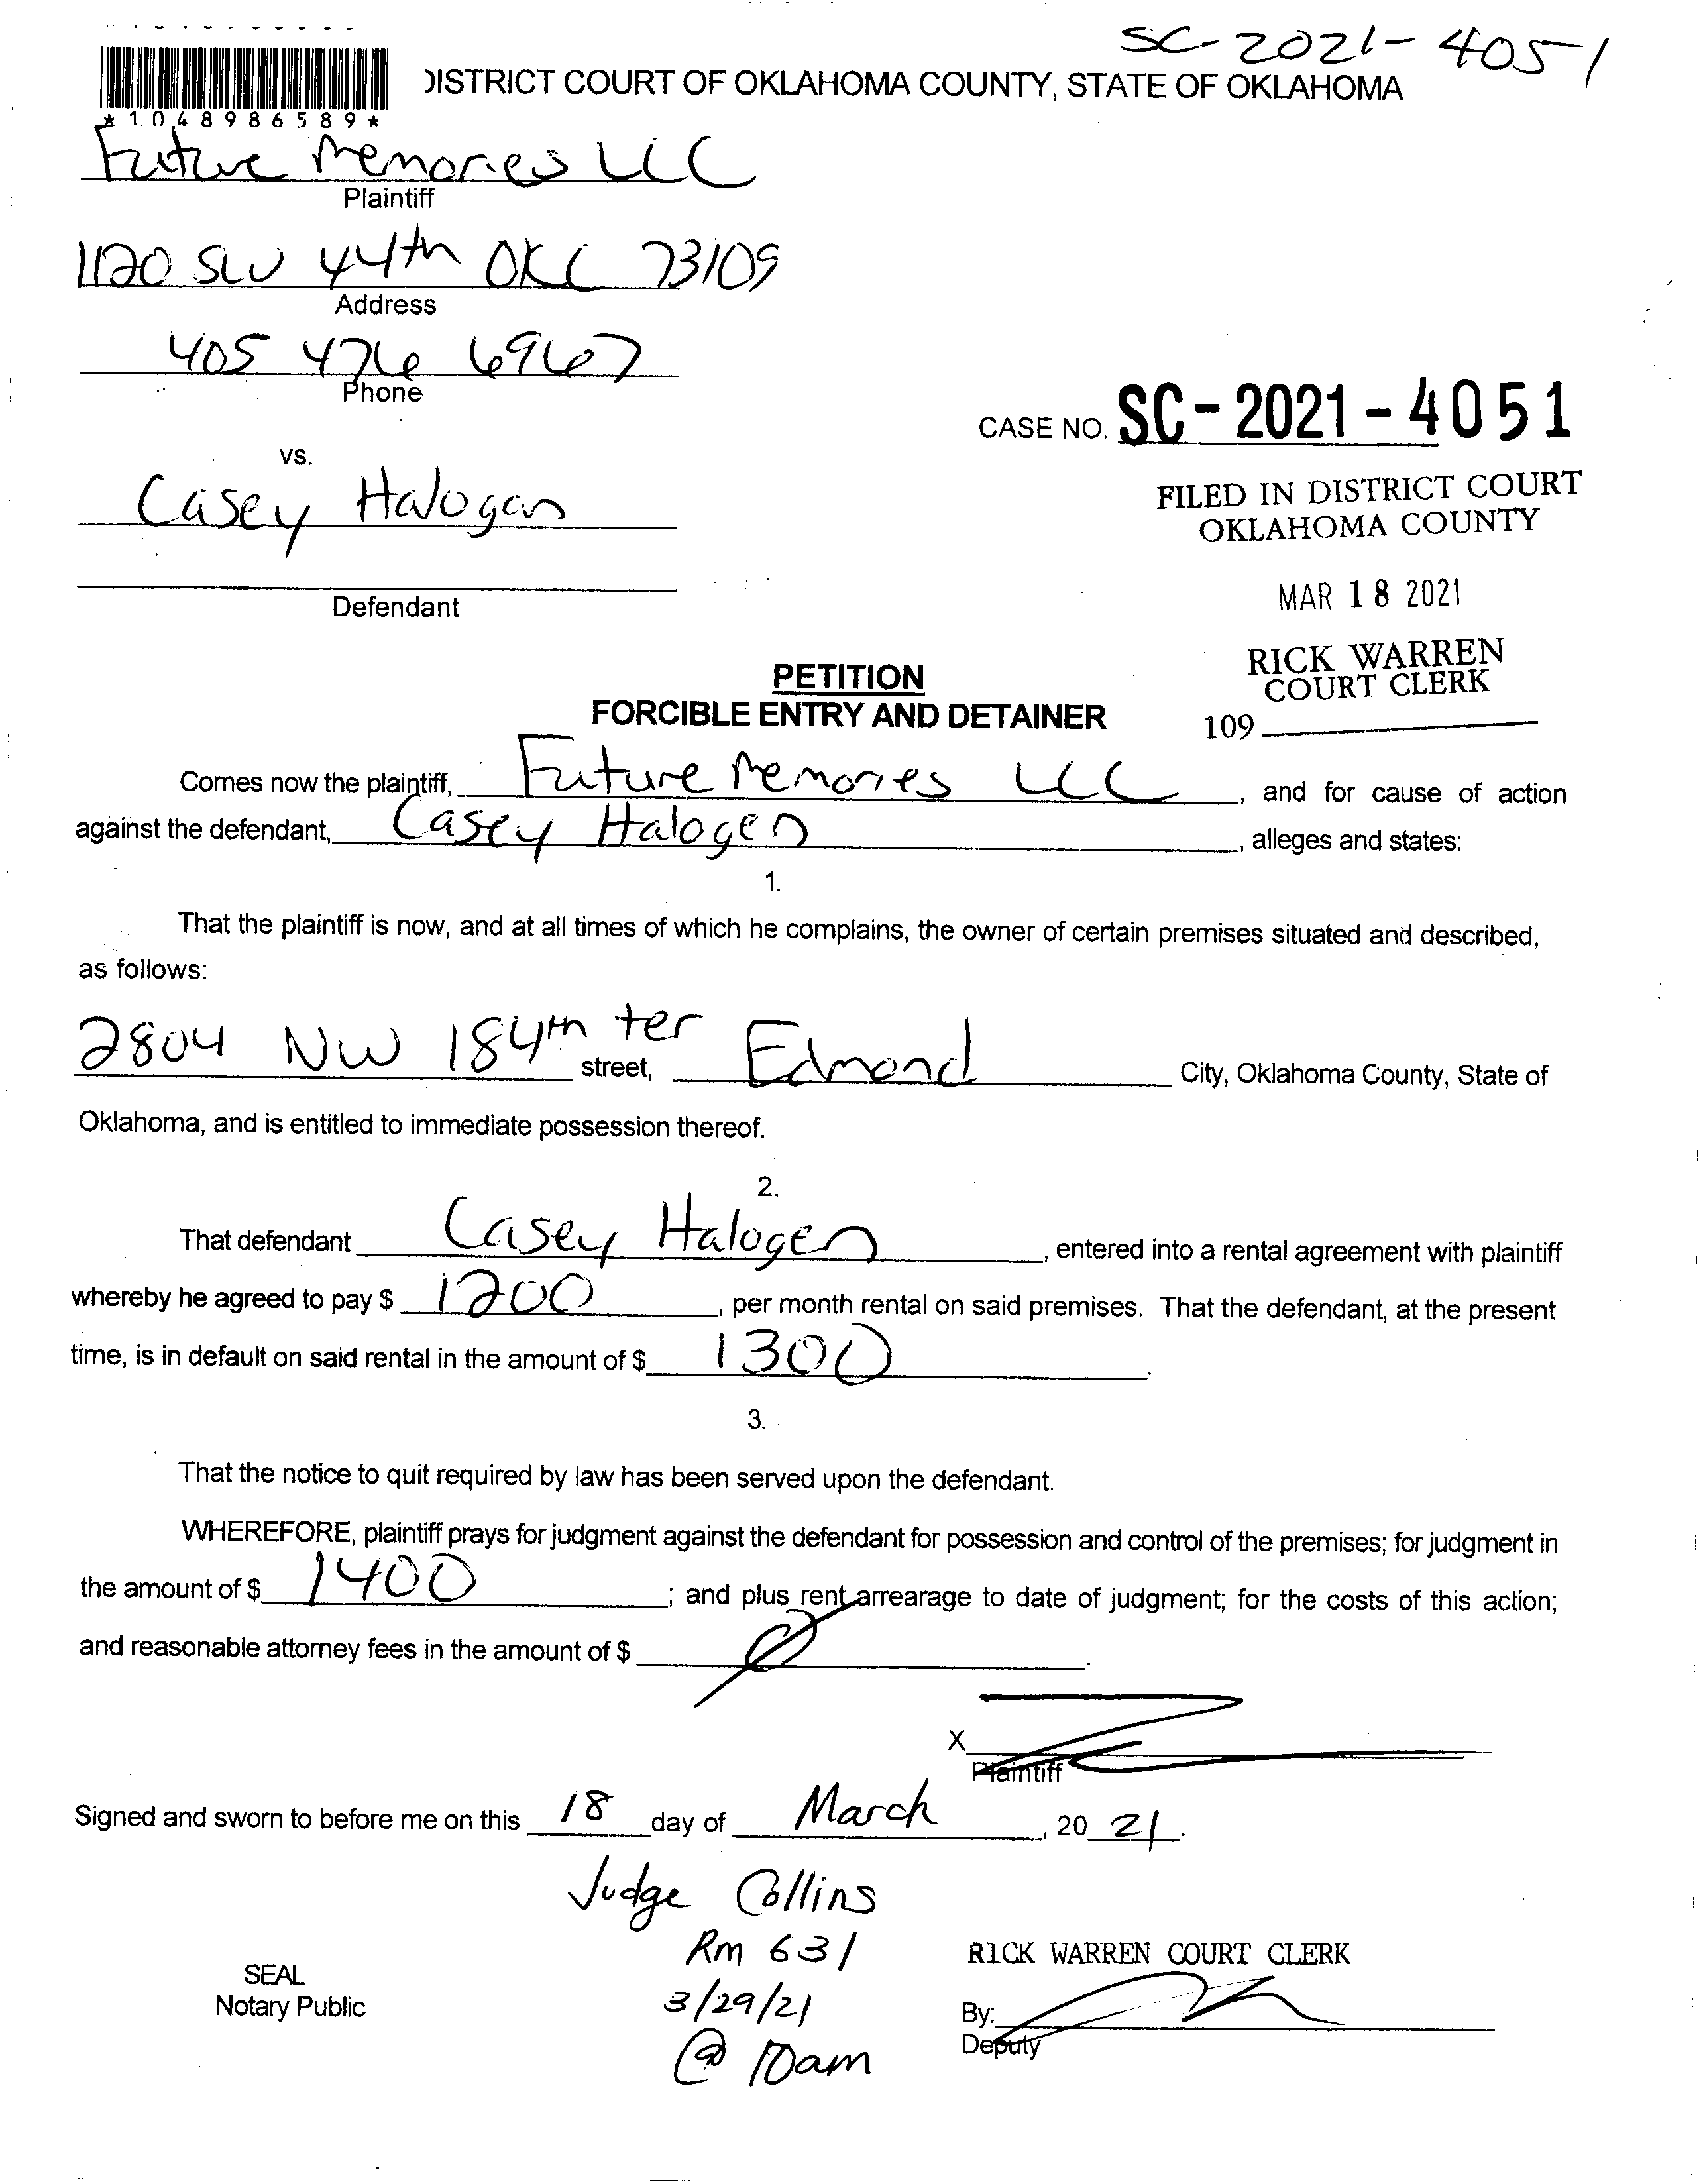 SC-2021-4051
DISTRICT COURT OF OKLAHOMA COUNTY, STATE OF OKLAHOMA
*1048986589*
Future Memories LLC
Plaintiff
1120 SW 44th OKC 73109
Address
405 476 6967
Phone
CASE NO. SC-2021-4051
vs.
Casey Halogan
FILED IN DISTRICT COURT
OKLAHOMA COUNTY
Defendant
MAR 18 2021
RICK WARREN
COURT CLERK
109
PETITION
FORCIBLE ENTRY AND DETAINER
Comes now the plaintiff, Future Memories LLC, and for cause of action
against the defendant, Casey Halogen, alleges and states:
1.
That the plaintiff is now, and at all times of which he complains, the owner of certain premises situated and described,
as follows:
2804 NW 184th ter street, Edmond City, Oklahoma County, State of
Oklahoma, and is entitled to immediate possession thereof.
2.
That defendant Casey Halogen, entered into a rental agreement with plaintiff
whereby he agreed to pay $ 1200, per month rental on said premises. That the defendant, at the present
time, is in default on said rental in the amount of $ 1300.
3.
That the notice to quit required by law has been served upon the defendant.
WHEREFORE, plaintiff prays for judgment against the defendant for possession and control of the premises; for judgment in
the amount of $ 1400; and plus rent arrearage to date of judgment; for the costs of this action;
and reasonable attorney fees in the amount of $ 0.
X
Plaintiff
Signed and sworn to before me on this 18 day of March, 20 21.
Judge Collins
Rm 631
3/29/21
@ 10am
SEAL
Notary Public
RICK WARREN COURT CLERK
By:
Deputy